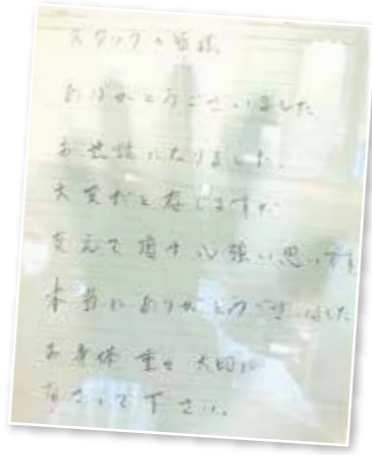 スタッフの皆様
ありがとうございました
お世話になりました。
大変だと存じますが
支えて頂き心強い思いです
本当にありがとうございました
お身体 大切に
なさって下さい。